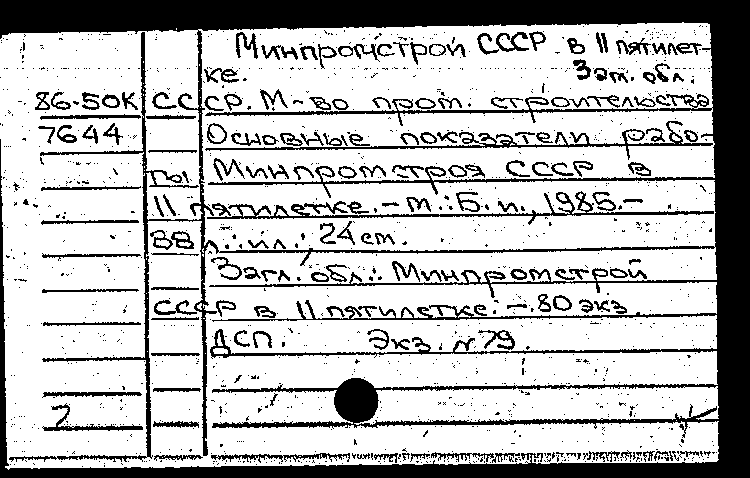 Минпромстрой СССР в 11 пятилет-
ке. Заг. обл.
86-50К СССР. М-во пром. строительства
7644 Основные показатели рабо-
ты Минпромстроя СССР в
11 пятилетке. - М.: Б. и., 1985. -
88 л.: ил.; 24 см.
Загл. обл.: Минпромстрой
СССР в 11 пятилетке. - 80 экз.
ДСП. Экз. № 79.
2